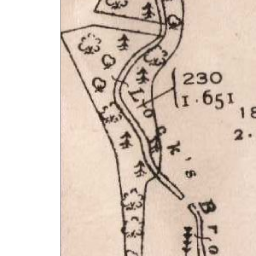 230
1.651
18
2.
Lock's
Bro